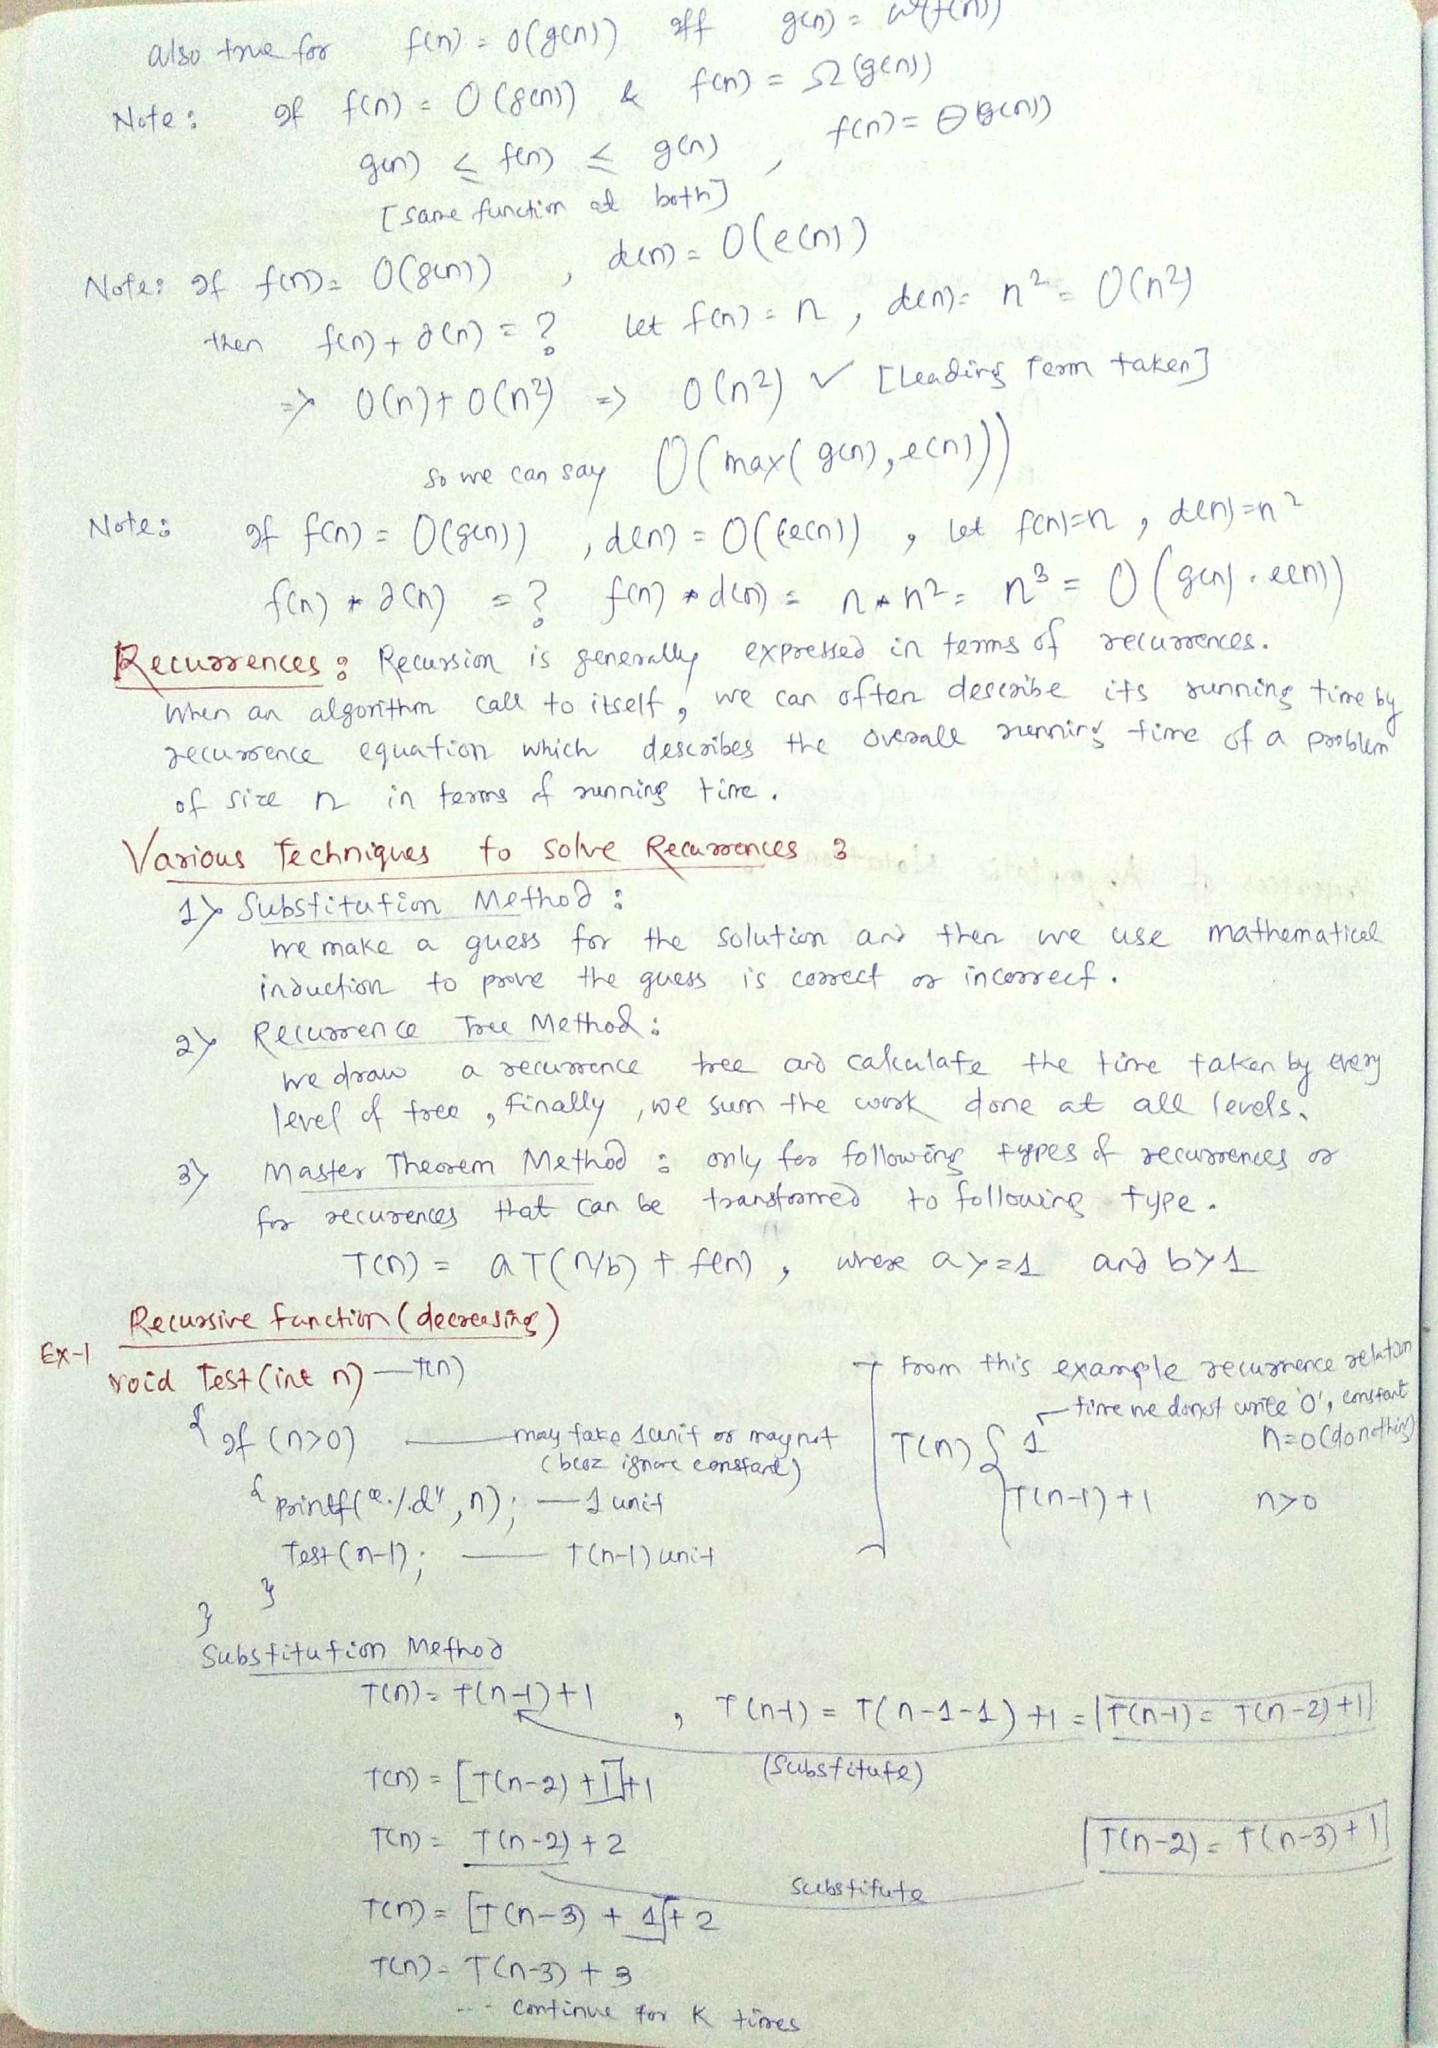 also true for f(n) = o(g(n)) iff g(n) = ω(f(n))
Note: If f(n) = O(g(n)) & f(n) = Ω(g(n))
g(n) ≤ f(n) ≤ g(n) , f(n) = Θ(g(n))
[same function at both]
Note: If f(n) = O(g(n)) , d(n) = O(e(n))
then f(n) + d(n) = ? let f(n) = n , d(n) = n² = O(n²)
=> O(n) + O(n²) => O(n²) ✓ [Leading Term taken]
so we can say O(max(g(n), e(n)))
Note: If f(n) = O(g(n)) , d(n) = O(e(n)) , let f(n)=n , d(n)=n²
f(n) * d(n) = ? f(n) * d(n) = n * n² = n³ = O(g(n) . e(n))
Recurrences : Recursion is generally expressed in terms of recurrences.
When an algorithm call to itself, we can often describe its running time by
recurrence equation which describes the overall running time of a problem
of size n in terms of running time.
Various Techniques to Solve Recurrences :
1> Substitution Method :
We make a guess for the solution and then we use mathematical
induction to prove the guess is correct or incorrect.
2> Recurrence Tree Method :
We draw a recurrence tree and calculate the time taken by every
level of tree, Finally, we sum the work done at all levels.
3> Master Theorem Method : only for following types of recurrences or
for recurences that can be transformed to following type.
T(n) = aT(n/b) + f(n) , where a>=1 and b>1
Recursive function (decreasing)
Ex-1
void Test(int n) — T(n)
{ if (n>0) — may take 1 unit or may not
(becoz ignore constant)
{ printf("%d", n); — 1 unit
Test(n-1); — T(n-1) unit
}
}
From this example recurrence relation
time we donot write '0', constant
T(n) { 1 n=0 (do nothing)
T(n-1)+1 n>0
Substitution Method
T(n) = T(n-1)+1 , T(n-1) = T(n-1-1)+1 = T(n-1) = T(n-2)+1
(Substitute)
T(n) = [T(n-2)+1]+1
T(n) = T(n-2)+2 T(n-2) = T(n-3)+1
Substitute
T(n) = [T(n-3) + 1] + 2
T(n) = T(n-3) + 3
... Continue for K times